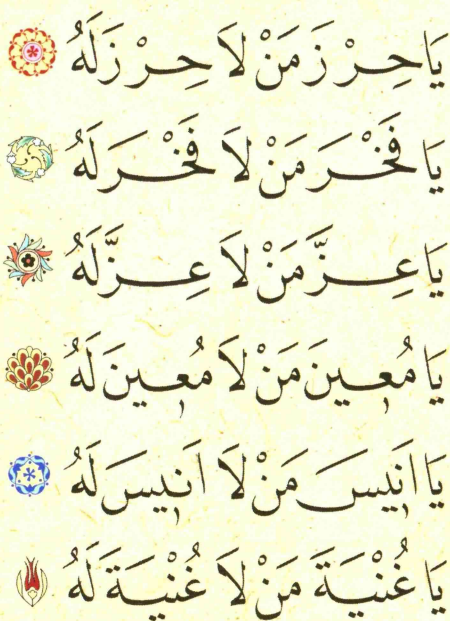 يَا حِرْزَ مَنْ لَا حِرْزَ لَهُ
يَا فَخْرَ مَنْ لَا فَخْرَ لَهُ
يَا عِزَّ مَنْ لَا عِزَّ لَهُ
يَا مُعٖينَ مَنْ لَا مُعٖينَ لَهُ
يَا اَنٖيسَ مَنْ لَا اَنٖيسَ لَهُ
يَا غُنْيَةَ مَنْ لَا غُنْيَةَ لَهُ